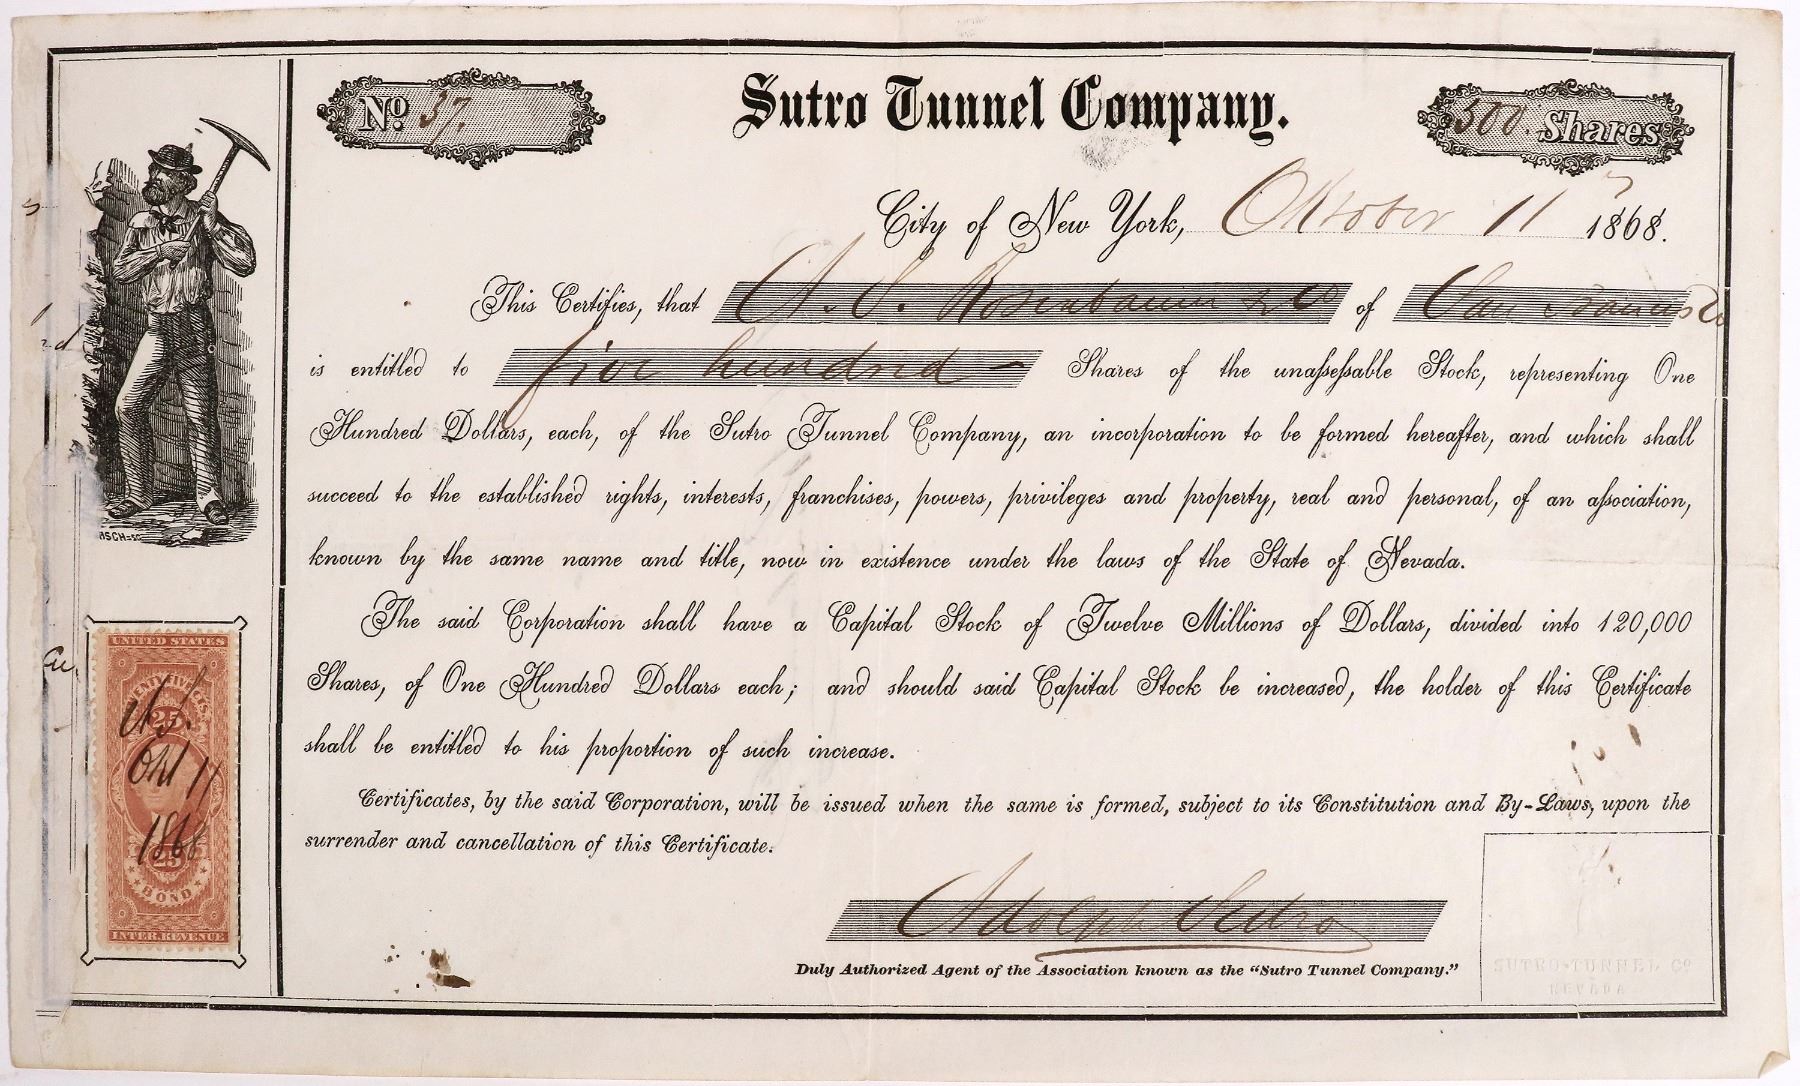 No 37.
Sutro Tunnel Company.
500. Shares
City of New York, Oktober 11 1868.
This Certifies, that A. S. Rosenbaum & Co of San Francisco
is entitled to five hundred — Shares of the unassessable Stock, representing One
Hundred Dollars, each, of the Sutro Tunnel Company, an incorporation to be formed hereafter, and which shall
succeed to the established rights, interests, franchises, powers, privileges and property, real and personal, of an association,
known by the same name and title, now in existence under the laws of the State of Nevada.
The said Corporation shall have a Capital Stock of Twelve Millions of Dollars, divided into 120,000
Shares, of One Hundred Dollars each; and should said Capital Stock be increased, the holder of this Certificate
shall be entitled to his proportion of such increase.
Certificates, by the said Corporation, will be issued when the same is formed, subject to its Constitution and By-Laws, upon the
surrender and cancellation of this Certificate.
Adolph Sutro
Duly Authorized Agent of the Association known as the "Sutro Tunnel Company."
SUTRO-TUNNEL CO
NEVADA
UNITED STATES
TWENTY FIVE CTS.
25
A.S.
Okt 11
1868
25
BOND
INTER. REVENUE